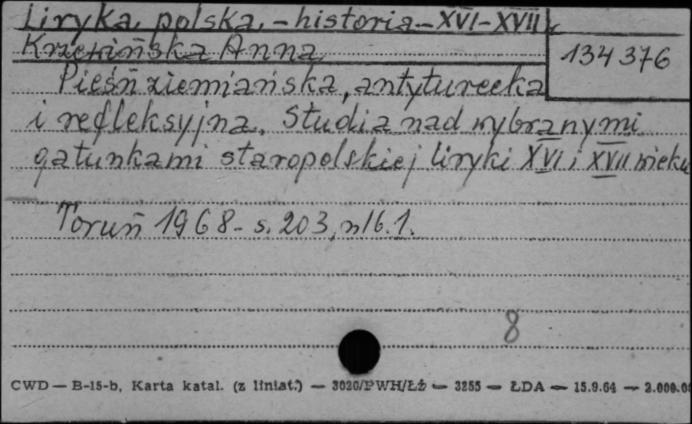 Liryka polska, - historia - XVI-XVII
134 376
Anna
Pieśń ziemiańska, antyturecka
i refleksyjna. Studia nad wybranymi
gatunkami staropolskiej liryki XVI i XVII wieku
Toruń 1968 - s. 203, nlb. 1.
8
CWD — B-15-b, Karta katal. (z liniat.) — 3020/PWH/Łż — 3255 — ŁDA — 15.9.64 — 2.000.00